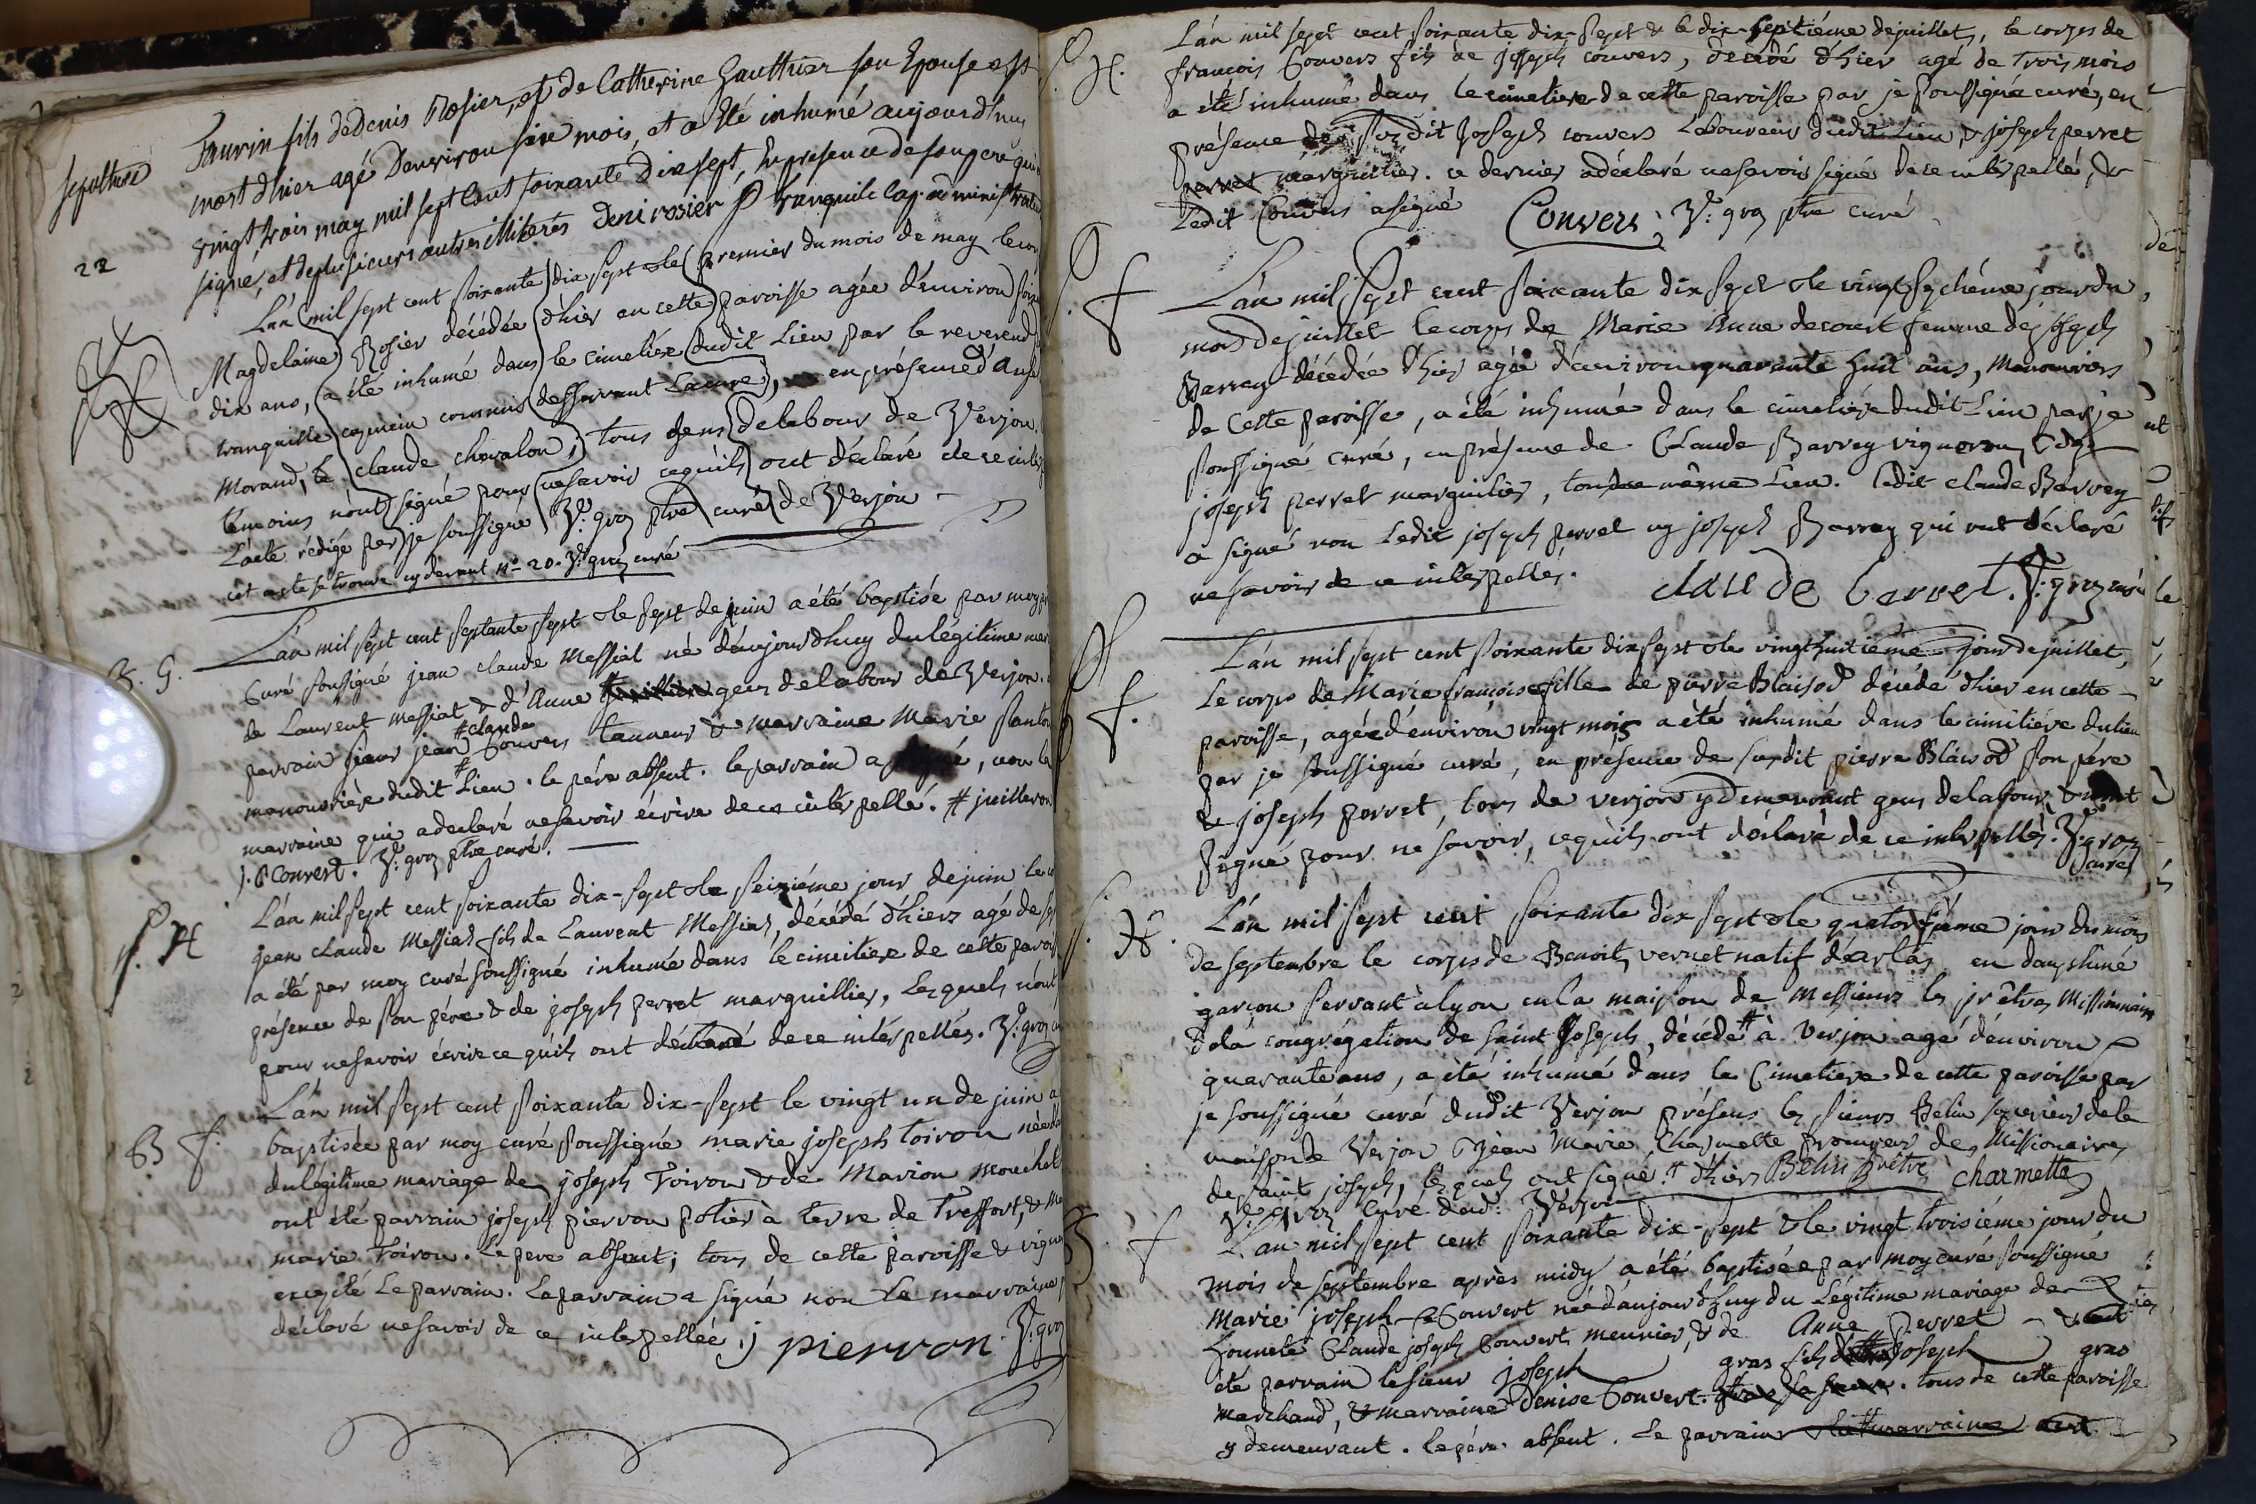 sepulture
fils de Denis Rosier, et de Catherine Gauthier son Epouse est
mort d'hier agé Denviron mois, et a été inhumé aujourd'huy
vingt trois may mil sept Cent soixante Dix sept, En presence de son pere qui a
signé, et de plusieurs autres illiterés Deni rosier P tranquile Cap.
22
L'an mil sept cent soixante dix sept & le premier du mois de may le
Magdelaine Rosier décédée d'hier en cette paroisse agée d'environ
dix ans, a été inhumé dans le cimetiére dudit Lieu par le reverend
tranquille capucin commis desservant La cure, en présence d'
Morand, & claude chevalon, tous gens de labour de Verjon.
témoins n'ont signé pour ne savoir ce qu'ils ont déclaré de ce
L'acte rédigé par je soussigné V: groz ptre curé de Verjon
cet acte se trouve cy devant n° 20. V: groz curé
B. G.
L'an mil sept cent septante sept & le sept de juin a été baptisé par moy
Curé soussigné jean claude Messiat né d'aujourdhuy du légitime
de Laurent Messiat & d'Anne # gens de labour de Verjon.
parrain sieur jean # claude Convers tanneur & marraine Marie
manouvriére dudit Lieu. le pére absent. le parrain a, non la
marraine qui a declaré ne savoir écrire de ce intérpellé. # juilleron
J. C Convert. V: groz ptre curé.
S. H
L'an mil sept cent soixante dix-sept & le seiziéme jour de juin le
jean claude Messiat fils de Laurent Messiat, décédé d'hier agé de
a été par moy curé soussigné inhumé dans le cimitiere de cette
présence de son pére & de joseph perret marguillier, Lesquels n'ont
pour ne savoir écrire ce qu'ils ont déclaré de ce intérpellés. V: groz
B f.
L'an mil sept cent soixante dix-sept le vingt un de juin a
baptisée par moy curé soussigné marie joseph toiron née
du légitime mariage de joseph Toiron & de Marion Mouchet
ont été parrain joseph pierron potier à terre de Treffort, &
marie Toiron. Le pere absent; tous de cette paroisse &
excepté Le parrain. Le parrain a signé non La marraine
déclaré ne savoir de ce interpellée. j pierron. V: groz
S. H.
L'an mil sept cent soixante dix-sept & le dix-septiéme de juillet, le corps de
francois Convers fils de joseph convers, decédé d'hier agé de trois mois
a été inhumé dans le cimetiere de cette paroisse par je soussigné curé, en
présence susdit Joseph convers Laboureur dudit Lieu & joseph perret
perret marguillier. ce dernier a déclaré ne savoir signé de ce intérpellé, &
Ledit Convers a signé Convers; V: groz ptre curé
S. f
L'an mil sept cent soixante dix sept & le vingt septiéme jour du
mois de juillet le corps de Marie Anne decourt femme de joseph
Barrey décédée d'hier agée d'environ quarante huit ans, Manouvriers
de Cette paroisse, a été inhumée dans le cimetiére dudit Lieu par je
soussigné curé, en présence de Claude Barrey vigneron, & de
joseph perret marguillier, tous de même Lieu. ledit claude Barrey
a signé non Ledit joseph perret ny joseph Barrey qui ont déclaré
ne savoir de ce intérpellés. claude Barret. V: groz curé
S. f.
L'an mil sept cent soixante dix sept & le vingt huitiéme jour de juillet,
Le corps de Marie françoise fille de pierre Blaisod décédé d'hier en cette
paroisse, agée d'environ vingt mois a été inhumé dans le cimitiére du lieu
par je soussigné curé, en présence de susdit pierre Blaisod son pére
& joseph perret, tous de verjon y Demeurant gens de labour, & n'ont
signé pour ne savoir, ce qu'ils ont déclaré de ce intérpellés. V: groz
curé
S. H.
L'an mil sept cent soixante dix sept & le quatorziéme jour du mois
de septembre le corps de Benoit vernet natif d'arlas en dauphiné
garçon servant à lyon en la maison de Messieurs les prêtres Missionnaires
de la congrégation de saint Joseph, décédé # à Verjon agé d'environ
quarante ans, a été inhumé dans le Cimetiere de cette paroisse par
je soussigné curé dudit Verjon présens les sieurs Belin supérieur de la
maison de Verjon & jean Marie Charmette procureur des Missionaires
de saint joseph, lesquels ont signé. # d'hier Belin prêtre charmette
V: groz curé dud: Verjon
B. f
L'an mil sept cent soixante dix-sept & le vingt troisiéme jour du
mois de septembre après midy a été baptisée par moy curé soussigné
Marie joseph Convert née d'aujourd'huy du Légitime mariage de
honnete Claude joseph Convert, meunier, & de Anne Perret & ont
été parrain le sieur joseph gras fils # Joseph gras
marchand, & marraine Denise Convert. tous de cette paroisse
y demeurant. le pére absent. Le parrain & la marraine ont